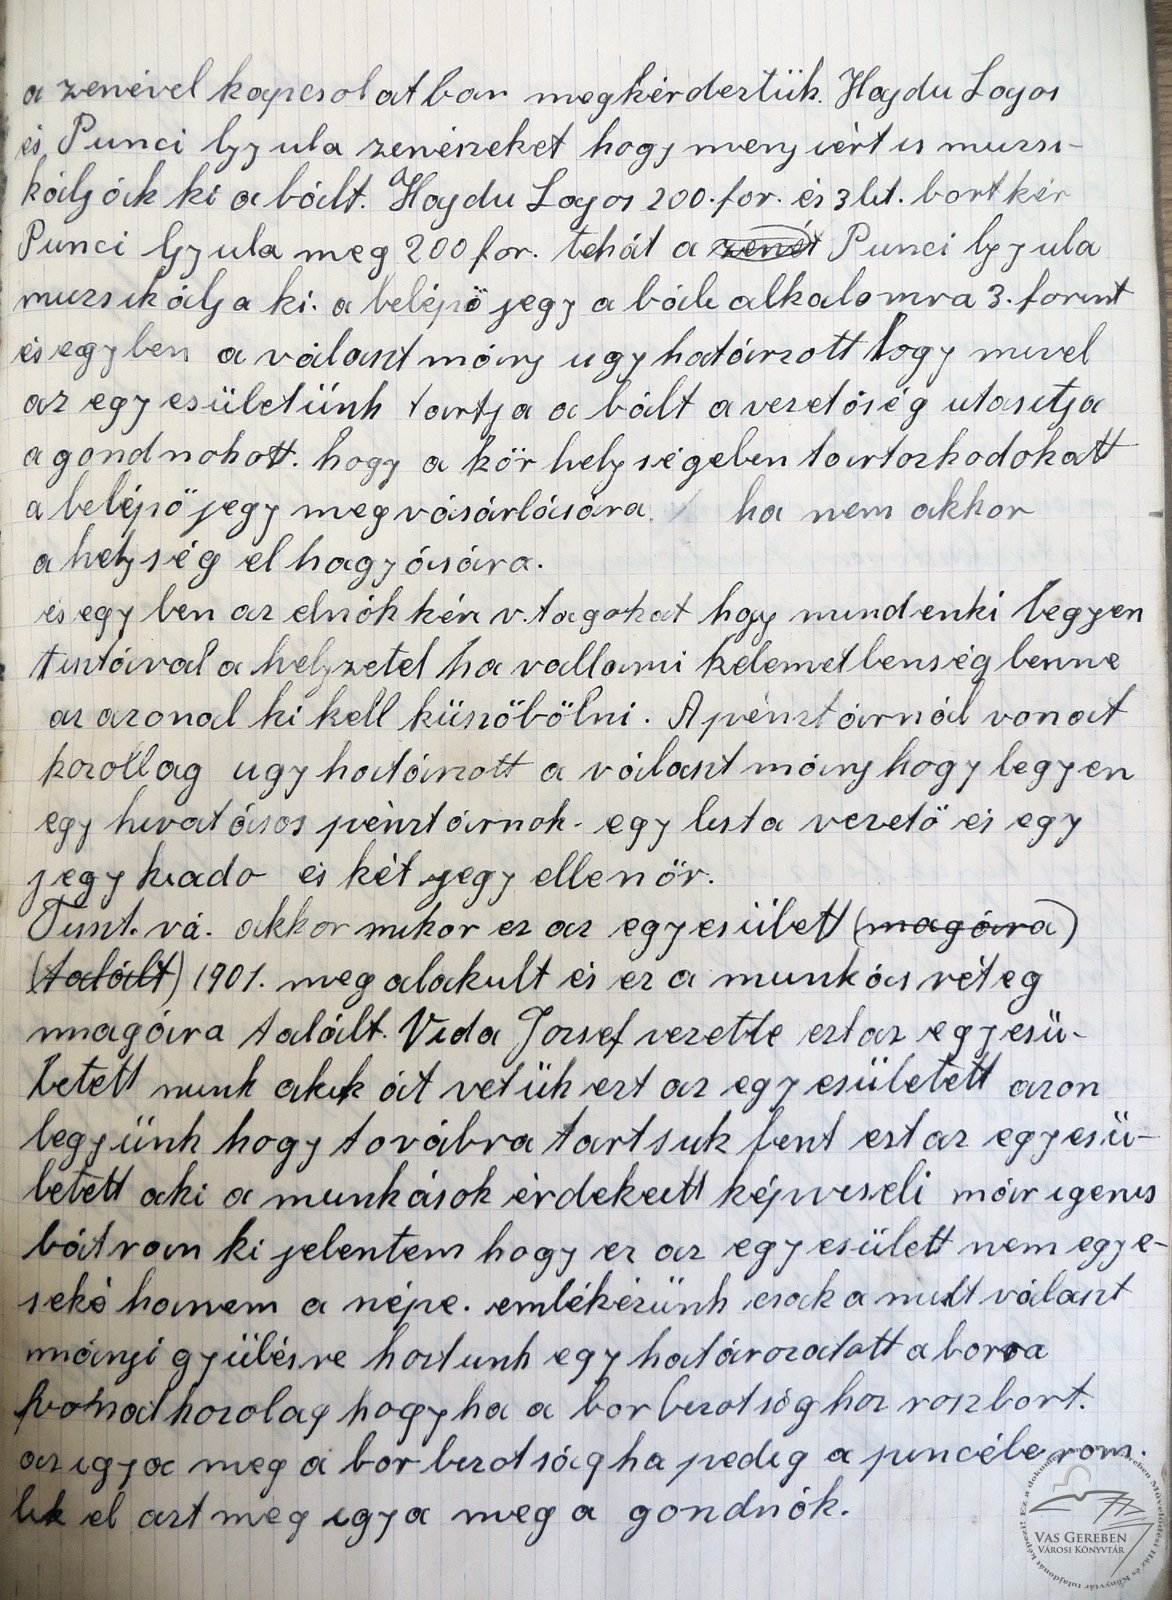 a zenével kapcsolatban megkérdeztük. Hajdu Lajos
és Punci Gyula zenészeket hogy menyiért is muzsi-
kálják ki a bált. Hajdu Lajos 200.for. és 3 lit. bort kér
Punci Gyula meg 200 for. tehát a zenét Punci Gyula
muzsikálja ki. a belépő jegy a bál alkalomra 3. forint
és egyben a választmány ugy határzott hogy mivel
az egyesületünk tartja a bált a vezetőség utasitja
a gondnokott. hogy a kör helységeben tartozkodokatt
a belépő jegy megvásárlására. ha nem akkor
a helység el hagyására.
és egyben az elnök kéri v. tagokat hogy mindenki legyen
tisztával a helyzetel ha vallami kelemetlenség benne
az azonal ki kell küszöbölni. A pénztárnál vonat
kozollag ugy határzott a választmány hogy legyen
egy hivatásos pénztárnok. egy lista vezető és egy
jegy kiado és két jegy ellenőr.
Tiszt. vá. akkor mikor ez az egyesület (magára)
(talált) 1901. meg alakult és ez a munkás réteg
magára talált. Vida Jozsef vezette ezt az egyesü-
letett mink akik át vetük ezt az egyesületett azon
legyünk hogy továbra tartsuk fent ezt az egyesü-
letett aki a munkások érdekeitt képviseli már igenis
bátran ki jelentem hogy ez az egyesülett nem egye-
seké hanem a népe. emlékézünk csak a mult választ
mányi gyülésre hoztunk egy határozatott a borra
vonatkozolag hogy ha a bor bizotság hoz rosz bort.
az igya meg a bor bizotság ha pedig a pincébe rom.
lik el azt meg igya meg a gondnök.
VAS GEREBEN
VÁROSI KÖNYVTÁR